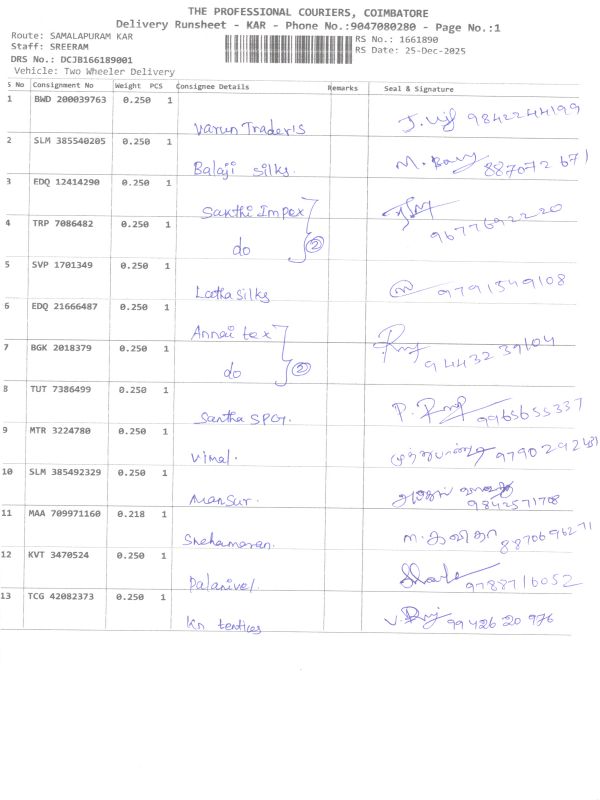 THE PROFESSIONAL COURIERS, COIMBATORE
Delivery Runsheet - KAR - Phone No.:9047080280 - Page No.:1
Route: SAMALAPURAM KAR
Staff: SREERAM
DRS No.: DCJB166189001
Vehicle: Two Wheeler Delivery
RS No.: 1661890
RS Date: 25-Dec-2025
S No Consignment No Weight PCS Consignee Details Remarks Seal & Signature
1 BWD 200039763 0.250 1 Varun Traders 9842244199
2 SLM 385540205 0.250 1 Balaji silks. 887072 671
3 EDQ 12414290 0.250 1 Sakthi Impex 9677692220
4 TRP 7086482 0.250 1 do 2
5 SVP 1701349 0.250 1 Latha silks 9791549108
6 EDQ 21666487 0.250 1 Annai tex 9443239104
7 BGK 2018379 0.250 1 do 2
8 TUT 7386499 0.250 1 Santha SPG. 9965655337
9 MTR 3224780 0.250 1 Vimal.
10 SLM 385492329 0.250 1 Mansur. 9842571708
11 MAA 709971160 0.218 1 Snehamaran. ம.கவிதா 8870696271
12 KVT 3470524 0.250 1 Palanivel. 9788716052
13 TCG 42082373 0.250 1 Kn textiles 9942620976